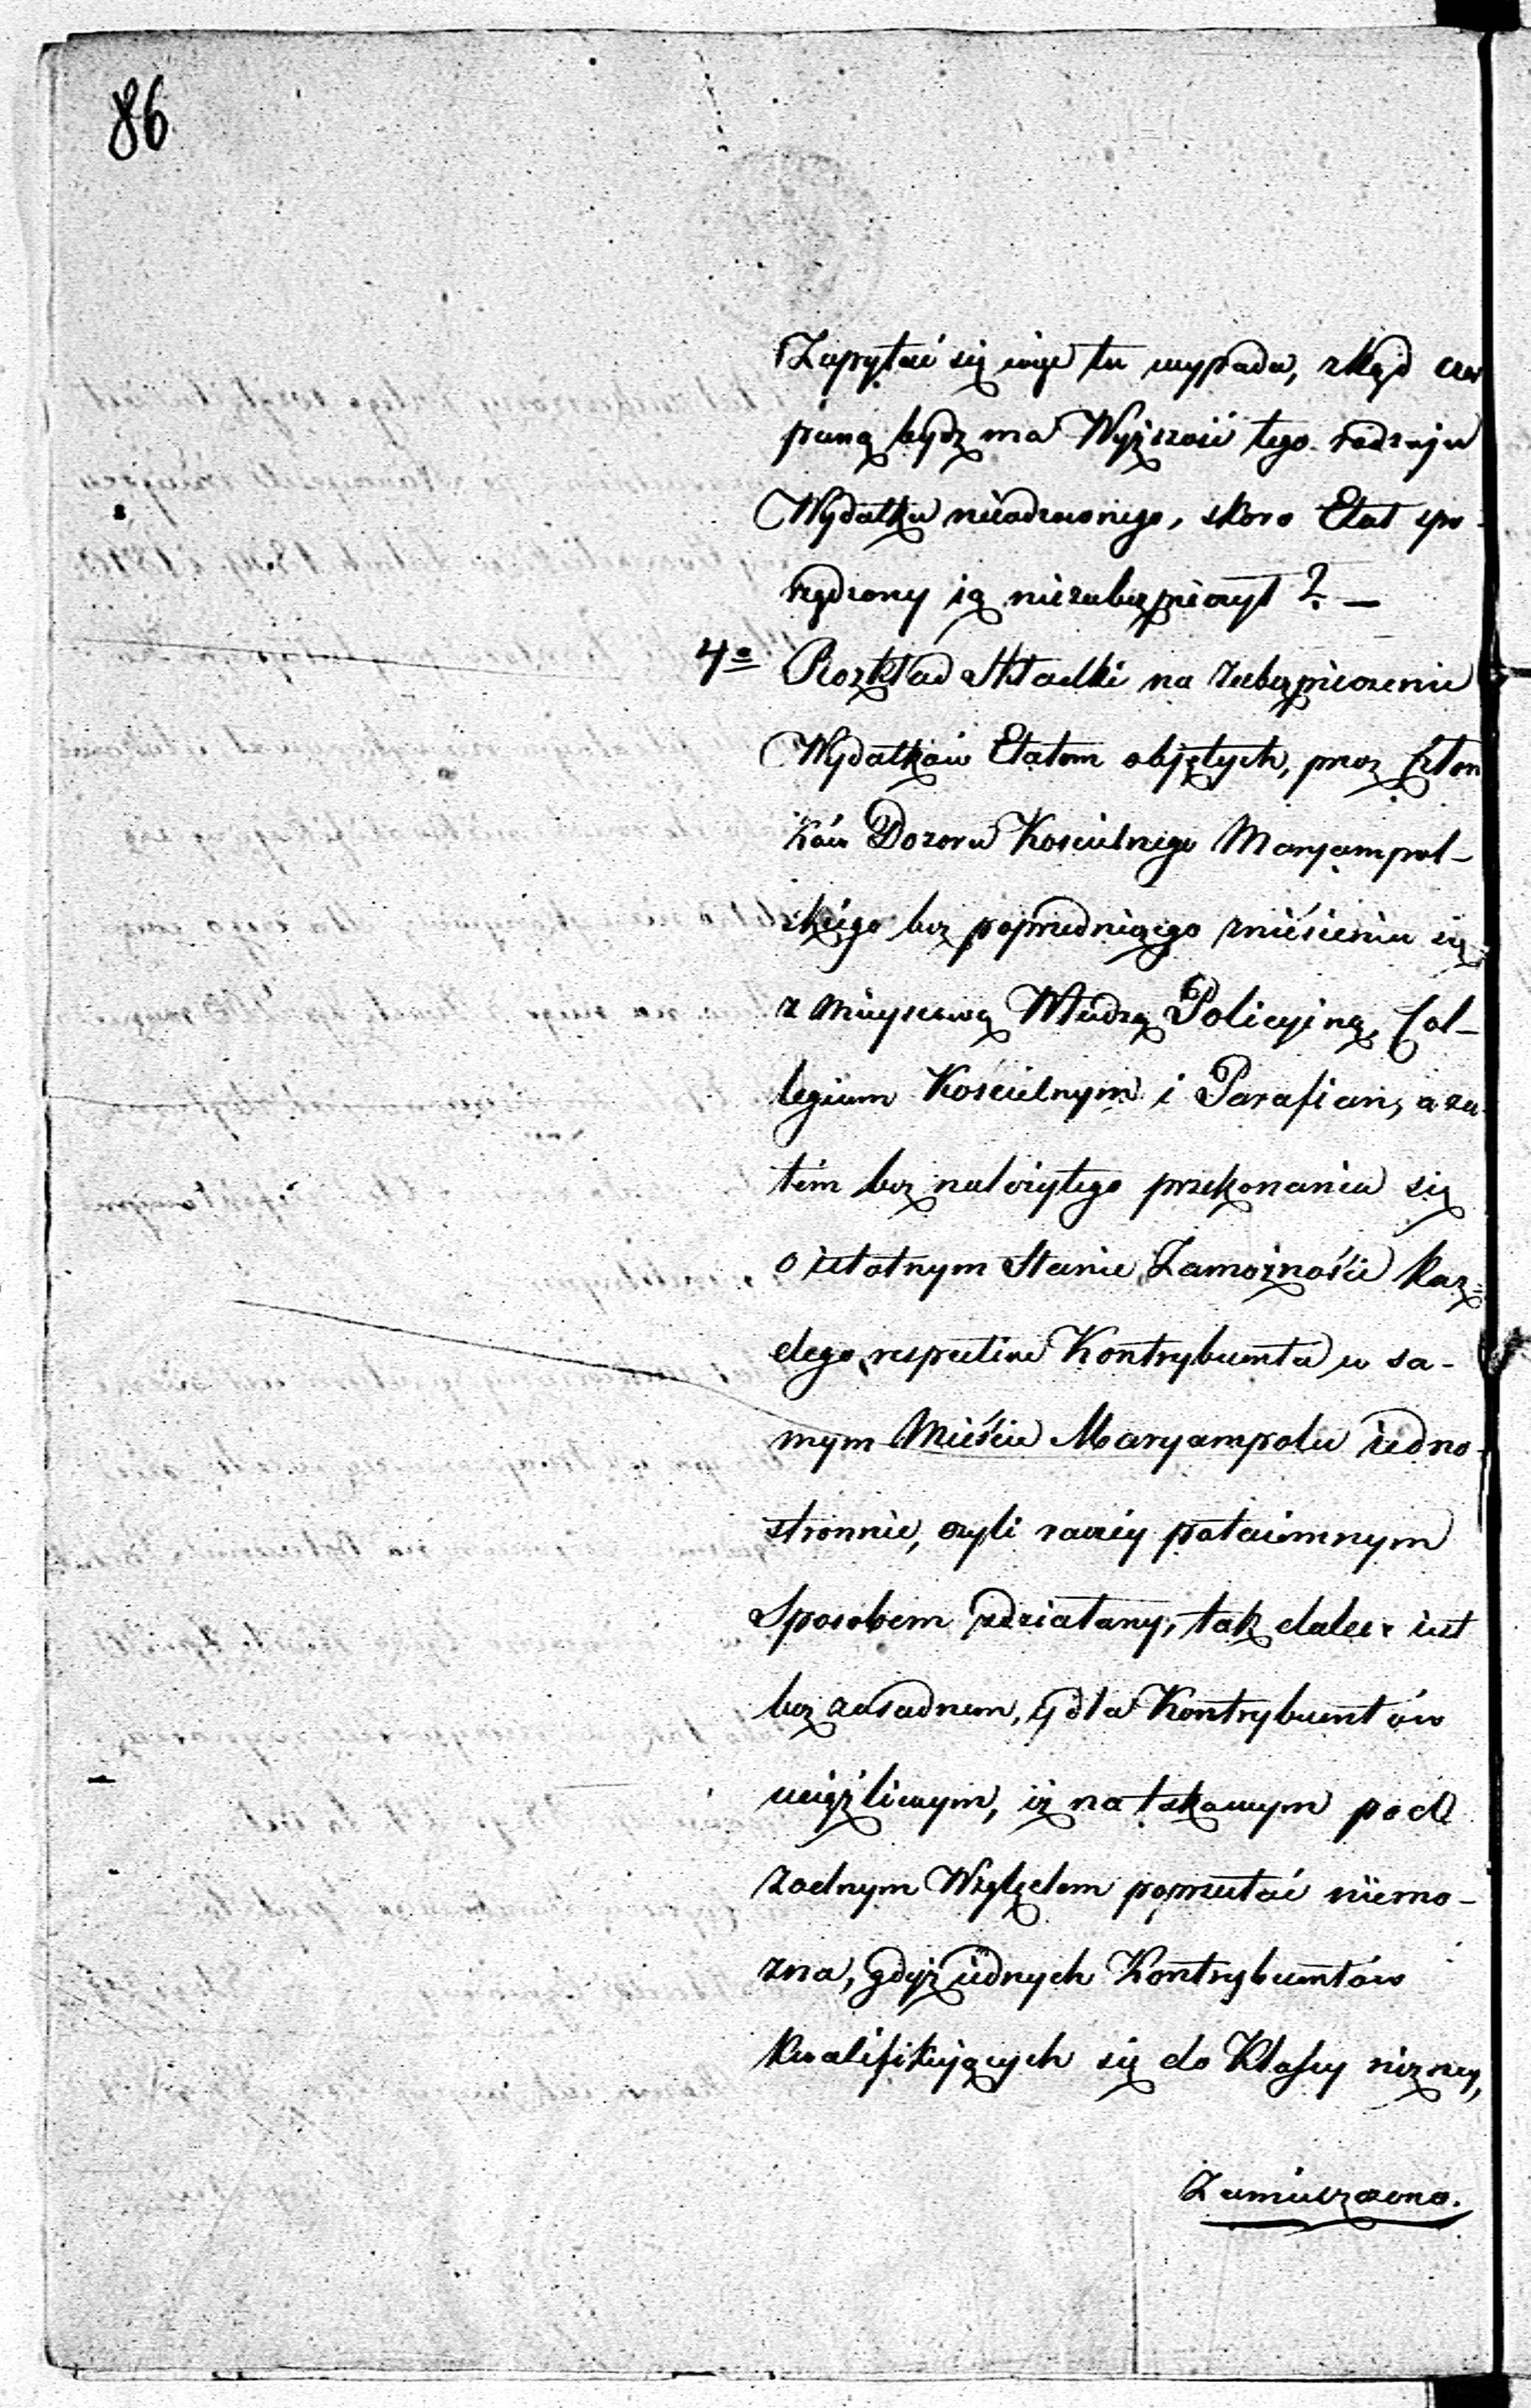 86
Zapytać się więc tu wypada, zkąd czer
paną bydź ma Wyższość tego rodzaju
Wydatku nieodzownego, skoro Etat spo-
rządzony ią niezabezpieczył? —
4o Rozkład Składki na zabezpieczenie
Wydatków Etatem objętych, przez Człon
ków Dozoru Kościelnego Maryampol-
skiego bez poprzedniczego zniesienia się
z Mieyscową Władzą Policyiną, Col-
legium Kościelnym i Parafian, a za-
tém bez należytego przekonania się
o istotnym Stanie Zamożności każ-
dego respective Kontrybuenta w sa-
mym Mieście Maryampolu iedno-
stronnie, czyli raczéy potaiemnym
Sposobem zdziałany, tak dalece iest
bezzasadnem, y dla Kontrybuentów
uciążliwym, iż na takowym pod
żadnym Względem poprzestać niemo-
żna, gdyż iednych Kontrybuentów
kwalifikuiących się do Klassy niższey,
Zamieszczono.